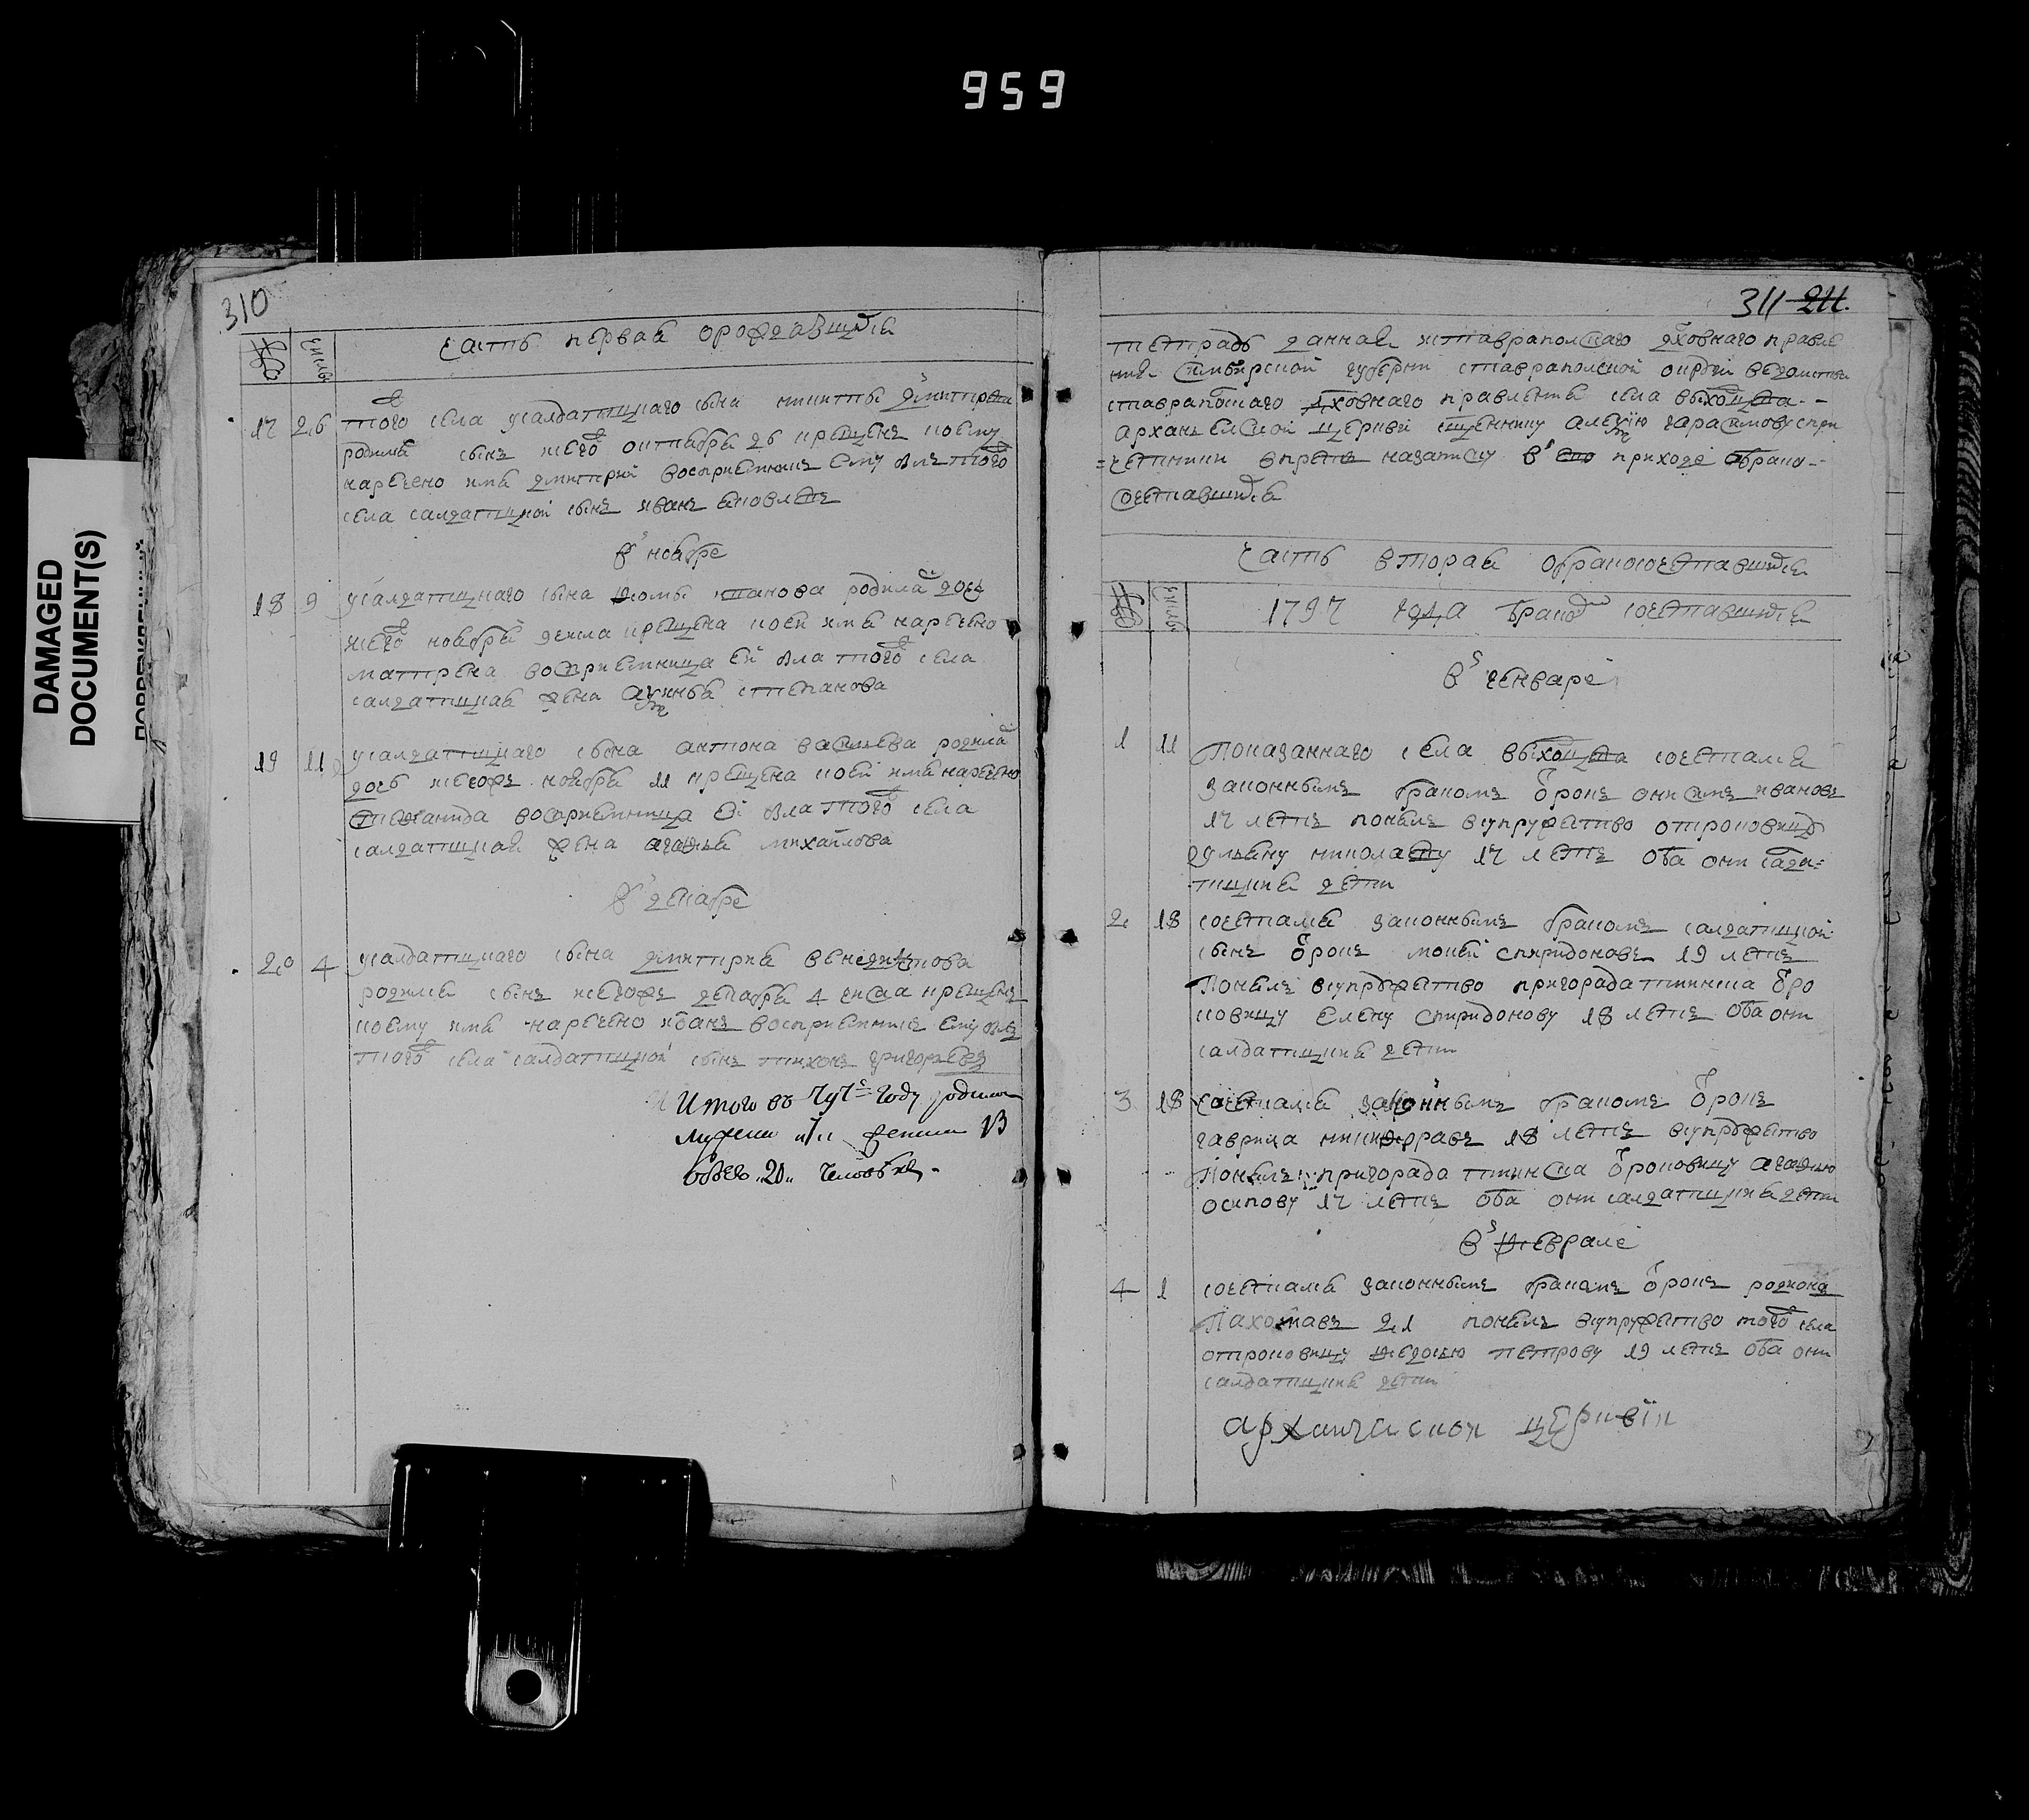 959
DAMAGED
DOCUMENT(S)
310
№ число
часть первая орождавшихся
17 26 того села усалдатцкаго сына никиты дмитрева
родился сынъ того октября 26 крещенъ коему
наречено имя дмитрий восприемникъ ему былъ того
села салдатцкой сынъ иванъ яковлевъ
въ ноябре
18 9 усалдатцкаго сына фомы степанова родилась дочь
ноября числа крещена коей имя наречено
матрена восприемница ей была того села
салдатцкая жена степанова
19 11 усалдатцкаго сына антона васильева родилась
дочь ноября 11 крещена коей имя наречено
степанида восприемница ей была того села
салдатцкая жена агафья михайлова
въ декабре
20 4 усалдатцкаго сына дмитрия венедиктова
родился сынъ декабря 4 числа крещенъ
коему имя наречено иванъ восприемникъ ему былъ
того села салдатцкой сынъ тихонъ григорьевъ
Итого въ году родилося
мужеска женска 13
обоего 20 человекъ
311 211.
тетрадь данная изставрапольскаго духовнаго правле
ния симбирской губернии ставрапольской округи ведомства
ставрапольскаго духовнаго правления села выхонцева
архангельской церкви священнику алексию гарасимову спри
четники впредь назаписку в его приходе обрако
сочетавшихся
часть вторая обракосочетавшихся
№ число
1797 года браком сочетавшихся
въ генваре
1 11 показаннаго села выхонцева сочетался
законнымъ бракомъ отрокъ онисимъ ивановъ
17 летъ понялъ всупружество отроковицу
улияну николаеву 17 летъ оба они салда
тцкия дети
2 18 сочетался законнымъ бракомъ салдатцкой
сынъ отрокъ мокей спиридоновъ 19 летъ
понялъ всупружество пригорада тиинска отро
ковицу елену спиридонову 18 летъ оба они
салдатцкия дети
3 18 сочетался законнымъ бракомъ отрокъ
гаврила никифоравъ 18 летъ всупружество
понялъ пригорада тиинска отроковицу агафию
осипову 17 летъ оба они салдатцкия дети
въ феврале
4 1 сочетался законнымъ бракомъ отрокъ родионъ
пахомавъ 21 понялъ всупружество того села
отроковицу федосью петрову 19 летъ оба они
салдатцкия дети
архангельской церкви